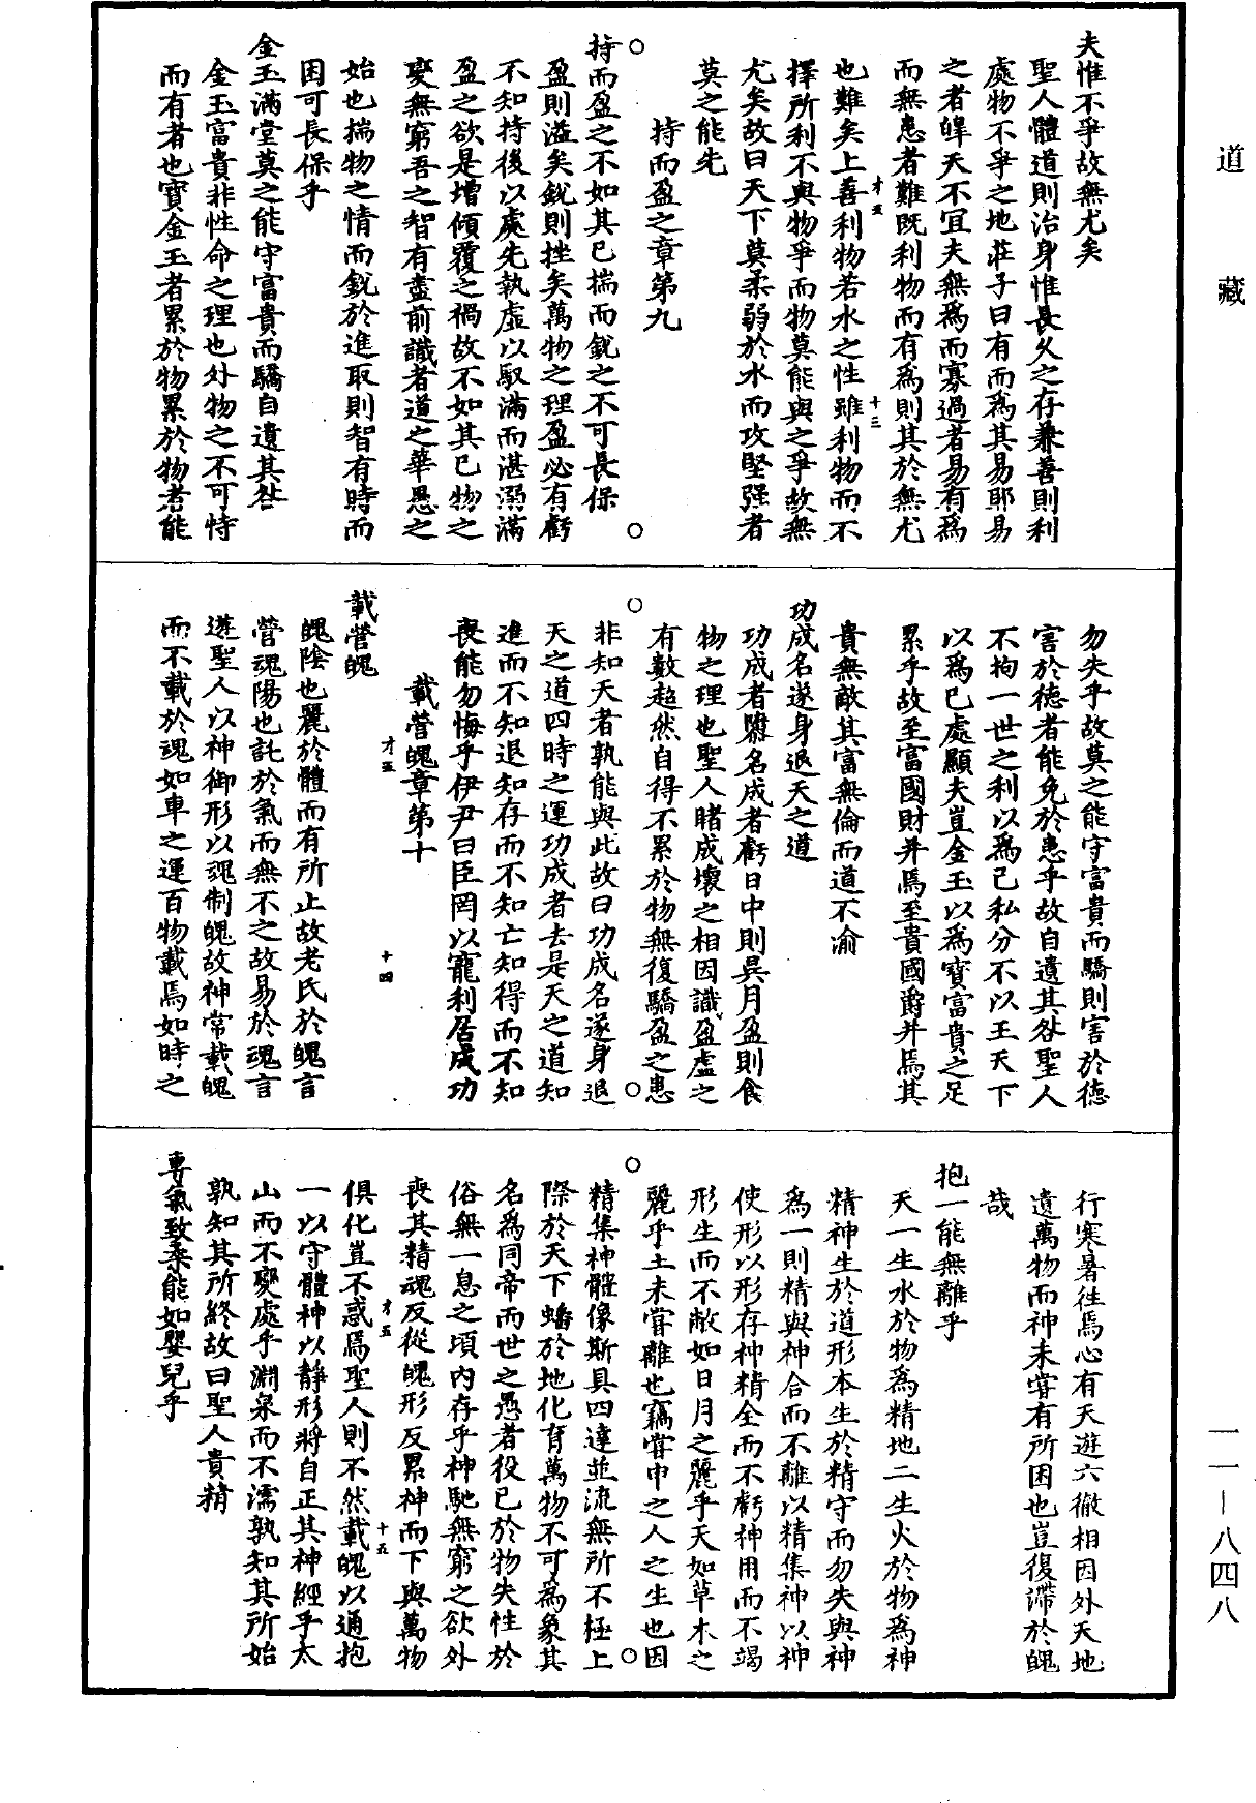 道藏
夫惟不爭故無尤矣
聖人體道則治身惟長久之存兼善則利
處物不爭之地莊子曰有而為其易耶易
之者皥天不宜夫無為而寡過者易有為
而無患者難既利物而有為則其於無尤
才五
十三
也難矣上善利物若水之性雖利物而不
擇所利不與物爭而物莫能與之爭故無
尤矣故曰天下莫柔弱於水而攻堅强者
莫之能先
持而盈之章第九
持而盈之不如其已揣而銳之不可長保
盈則溢矣銳則挫矣萬物之理盈必有虧
不知持後以處先執虛以馭滿而湛溺滿
盈之欲是增傾覆之禍故不如其已物之
變無窮吾之智有盡前識者道之華愚之
始也揣物之情而銳於進取則智有時而
困可長保乎
金玉滿堂莫之能守富貴而驕自遺其咎
金玉富貴非性命之理也外物之不可恃
而有者也寶金玉者累於物累於物者能
勿失乎故莫之能守富貴而驕則害於德
害於德者能免於患乎故自遺其咎聖人
不拘一世之利以為己私分不以王天下
以為已處顯夫豈金玉以為寶富貴之足
累乎故至富國財并焉至貴國爵并焉其
貴無敵其富無倫而道不渝
功成名遂身退天之道
功成者隳名成者虧日中則昃月盈則食
物之理也聖人睹成壞之相因識盈虛之
有數超然自得不累於物無復驕盈之患
非知天者孰能與此故曰功成名遂身退
天之道四時之運功成者去是天之道知
進而不知退知存而不知亡知得而不知
喪能勿悔乎伊尹曰臣罔以寵利居成功
載營魄章第十
才五
十四
載營魄
魄陰也麗於體而有所止故老氏於魄言
營魂陽也託於氣而無不之故易於魂言
遊聖人以神御形以魂制魄故神常載魄
而不載於魂如車之運百物載焉如時之
行寒暑往焉心有天遊六徹相因外天地
遺萬物而神未嘗有所困也豈復滯於魄
哉
抱一能無離乎
天一生水於物為精地二生火於物為神
精神生於道形本生於精守而勿失與神
為一則精與神合而不離以精集神以神
使形以形存神精全而不虧神用而不竭
形生而不敝如日月之麗乎天如草木之
麗乎土未嘗離也竊嘗申之人之生也因
精集神體像斯具四達並流無所不極上
際於天下蟠於地化育萬物不可為象其
名為同帝而世之愚者役己於物失性於
俗無一息之頃內存乎神馳無窮之欲外
喪其精魂反從魄形反累神而下與萬物
才五
十五
俱化豈不惑焉聖人則不然載魄以通抱
一以守體神以靜形將自正其神經乎太
山而不變處乎淵泉而不濡孰知其所始
孰知其所終故曰聖人貴精
專氣致柔能如嬰兒乎
一一—八四八